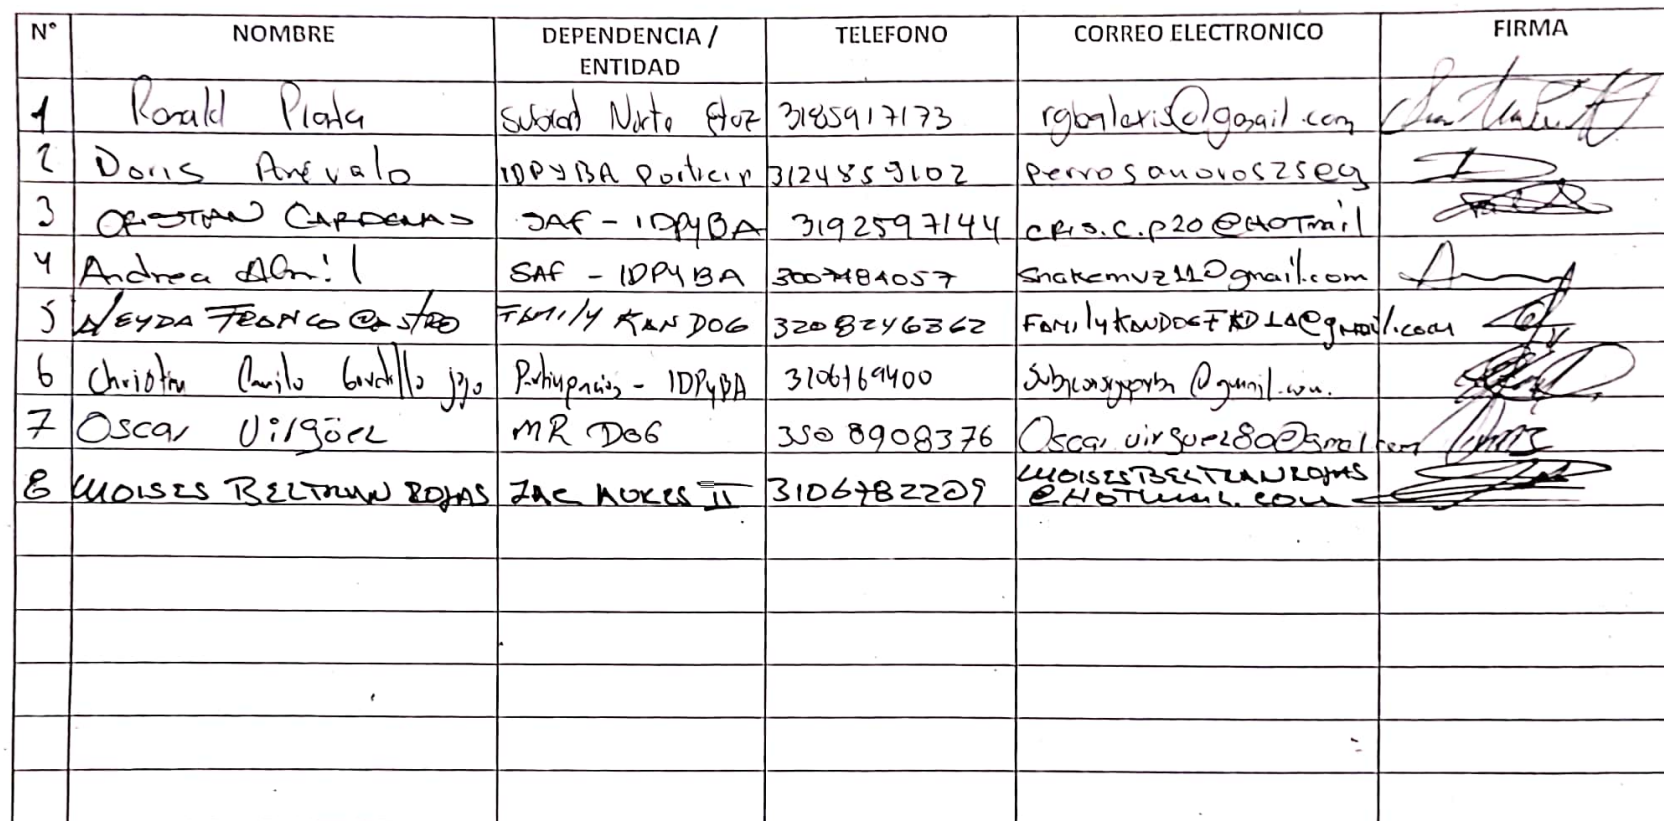 N° NOMBRE DEPENDENCIA / ENTIDAD TELEFONO CORREO ELECTRONICO FIRMA
1 Ronald Plata Norte 3185917173 rgbalexis@gmail.com
2 Doris Arevalo IDPYBA Particip 3124859102 perrosanovos2seg
3 CRISTIAN CARDENAS SAF - IDPYBA 3192597144 CRIS.C.P20@HOTmail
4 Andrea Abril SAF - IDPYBA 3007484057 snakemvz11@gmail.com
5 NEYDA FRANCO CASTRO FAMILY KANDOG 3208246362 @gmail.com
6 Christian Camilo Gordillo - IDPYBA 3106169400 @gmail.com.
7 Oscar Virgüez MR DOG 3508908376 Oscar.virguez80@gmail.com
8 MOISES BELTRAN ROJAS II 3106782209 MOISESBELTRANROJAS
@HOTMAIL.COM